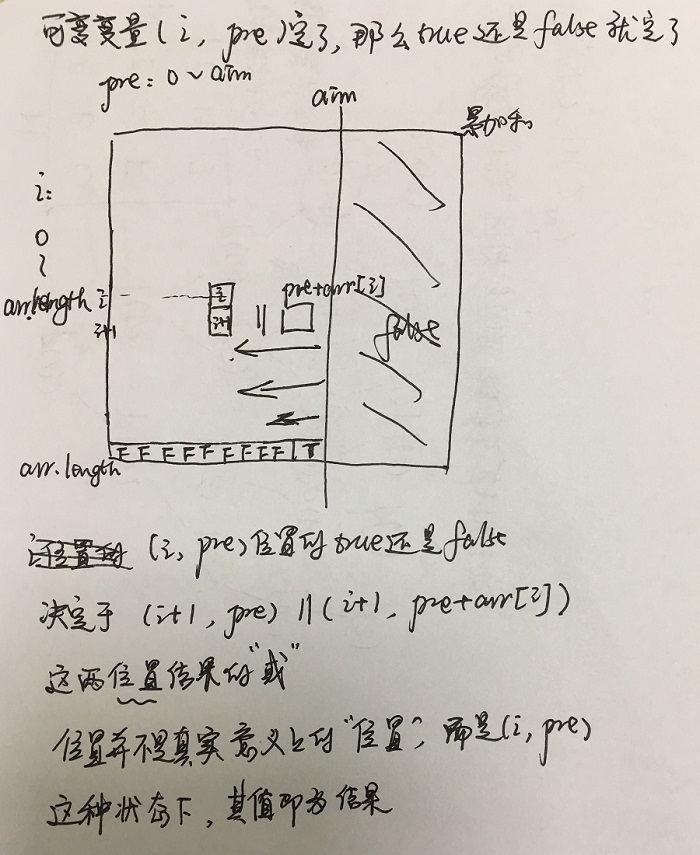 可变变量(i, pre)定了,那么true还是false就定了
pre: 0~aim
aim
累加和
i:
0
~
arr.length
i
i+1
i
i+1
||
pre+arr[i]
false
F F F F F F F F F T
arr.length
(i, pre)位置的true还是false
决定于 (i+1, pre) || (i+1, pre+arr[i])
这两位置结果的"或"
位置并不是真实意义上的"位置",而是(i, pre)
这种状态下,其值即为结果